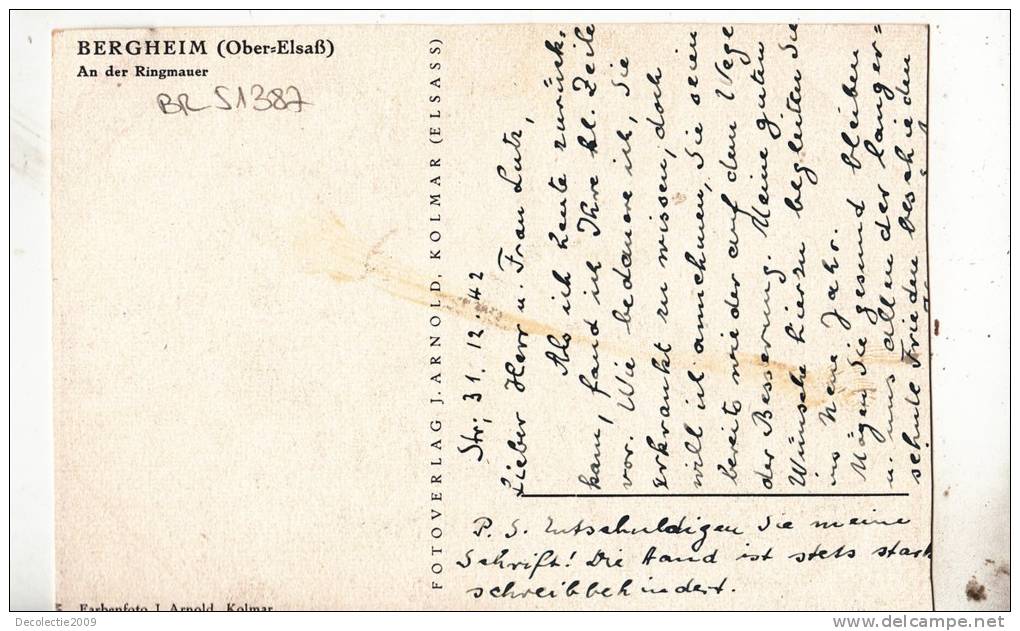 BERGHEIM (Ober-Elsaß)
An der Ringmauer
BR S1387
FOTOVERLAG J. ARNOLD, KOLMAR (ELSASS)
Str; 31. 12. 42
Lieber Herr u. Frau Lutz,
Als ich heute zurück-
kam, fand ich Ihre kl. Zeile
vor. Wie bedauere ich, Sie
erkrankt zu wissen, doch
will ich annehmen, Sie seien
bereits wieder auf dem Wege
der Besserung. Meine guten
Wünsche hierzu begleiten Sie
ins Neue Jahr.
Mögen Sie gesund bleiben
u. uns allen der langer=
sehnte Frieden beschieden
P. S. Entschuldigen Sie meine
Schrift! Die Hand ist stets stark
schreibbehindert.
Farbenfoto J. Arnold, Kolmar
Decolectie2009
www.delcampe.net